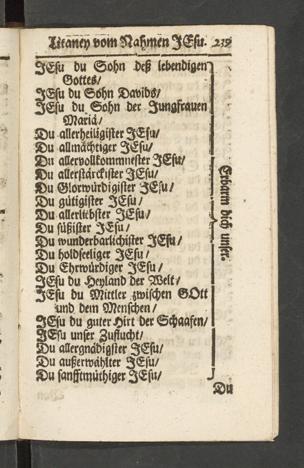 Litaney vom Nahmen JEsu. 239
JEsu du Sohn deß lebendigen
Gottes/
JEsu du Sohn Davids/
JEsu du Sohn der Jungfrauen
Mariä/
Du allerheiligister JEsu/
Du allmächtiger JEsu/
Du allervollkommnester JEsu/
Du allerstärckister JEsu/
Du Glorwürdigister JEsu/
Du gütigister JEsu/
Du allerliebster JEsu/
Du süßister JEsu/
Du wunderbarlichister JEsu/
Du holdseeliger JEsu/
Du Ehrwürdiger JEsu/
JEsu du Heyland der Welt/
JEsu du Mittler zwischen GOtt
und dem Menschen/
JEsu du guter Hirt der Schaafen/
JEsu unser Zuflucht/
Du allergnädigster JEsu/
Du außerwählter JEsu/
Du sanfftmüthiger JEsu/
Erbarm dich unser.
Du